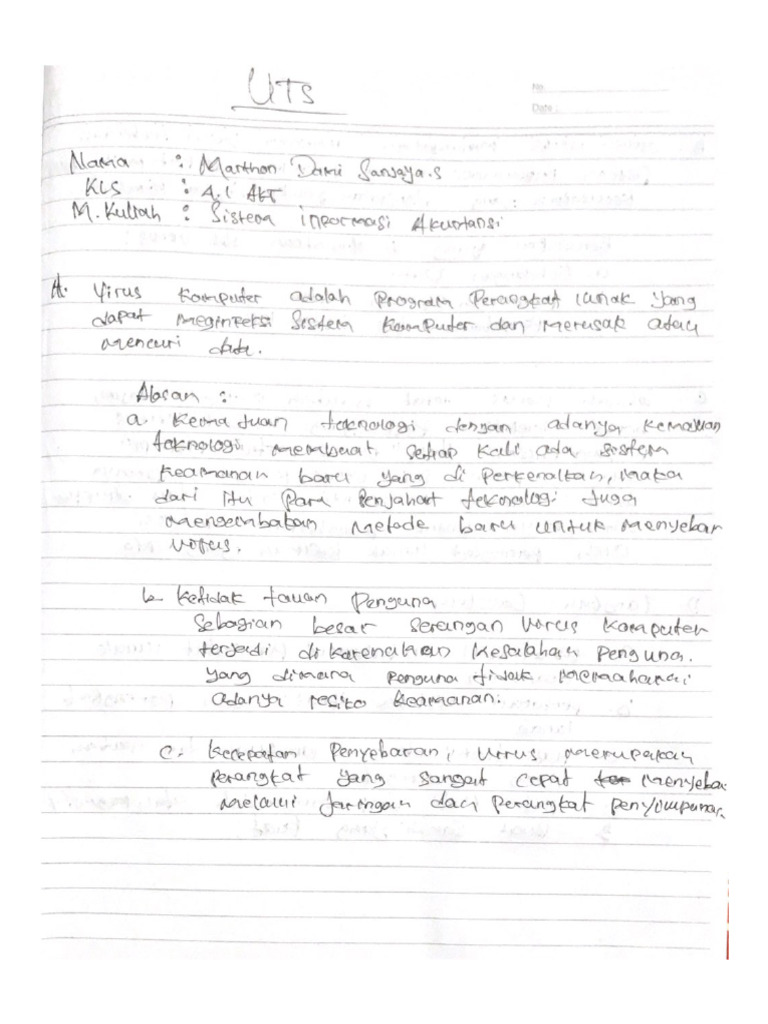 UTS
No.
Date :
Nama : Marthon Dami Sanjaya.S
KLS : 4.1 AKT
M. Kuliah : Sistem informasi Akuntansi
A. Virus Komputer adalah Program Perangkat lunak yang
dapat meginfeksi Sistem Komputer dan merusak atau
mencuri data.
Alasan :
a. Kemajuan teknologi, dengan adanya kemajuan
teknologi membuat setiap kali ada sistem
keamanan baru yang di perkenalkan, maka
dari itu para penjahat teknologi juga
mengembakan metode baru untuk menyebar
virus.
b. Ketidak tauan Penguna
Sebagian besar serangan virus komputer
terjadi di karenakan kesalahan penguna.
yang dimana penguna tidak memahami
adanya resiko keamanan.
c. Kecepatan Penyebaran, virus merupakan
perangkat yang sangat cepat menyebar
melalui jaringan dan perangkat penyimpanan.